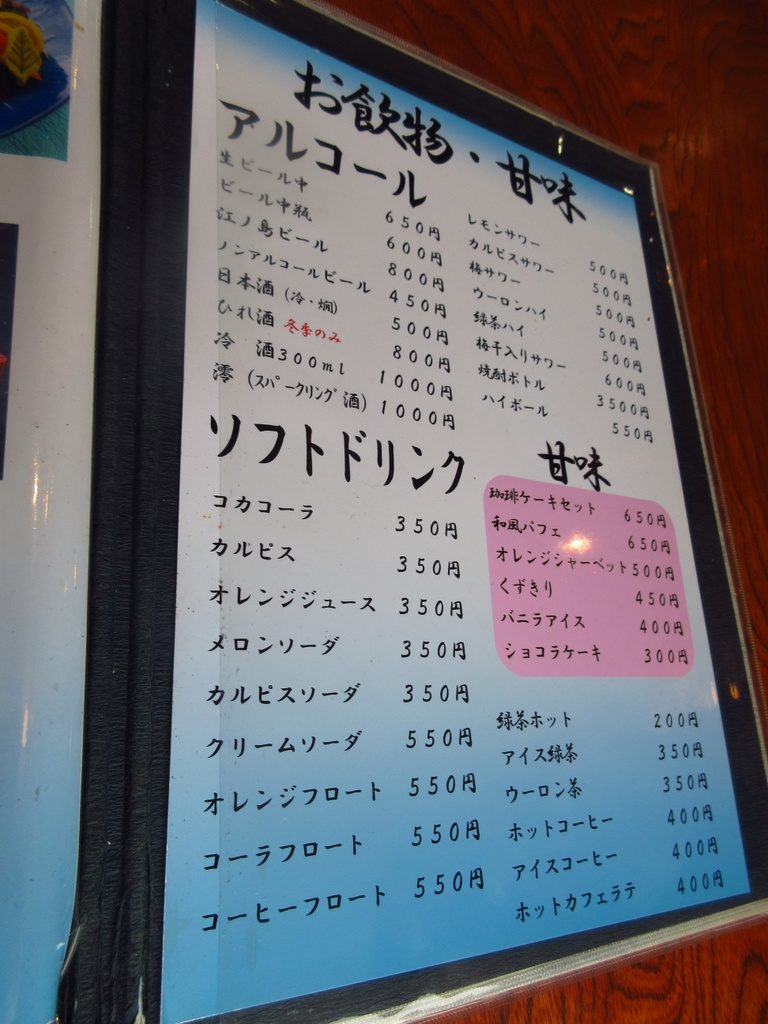 お飲物・甘味
アルコール
生ビール中 650円
ビール中瓶 600円
江ノ島ビール 800円
ノンアルコールビール 450円
日本酒（冷・燗） 500円
ひれ酒 冬季のみ 800円
冷　酒300ml 1000円
澪（スパークリング酒） 1000円
レモンサワー 500円
カルピスサワー 500円
梅サワー 500円
ウーロンハイ 500円
緑茶ハイ 500円
梅干入りサワー 600円
焼酎ボトル 3500円
ハイボール 550円
ソフトドリンク
コカコーラ 350円
カルピス 350円
オレンジジュース 350円
メロンソーダ 350円
カルピスソーダ 350円
クリームソーダ 550円
オレンジフロート 550円
コーラフロート 550円
コーヒーフロート 550円
甘味
珈琲ケーキセット 650円
和風パフェ 650円
オレンジシャーベット 500円
くずきり 450円
バニラアイス 400円
ショコラケーキ 300円
緑茶ホット 200円
アイス緑茶 350円
ウーロン茶 350円
ホットコーヒー 400円
アイスコーヒー 400円
ホットカフェラテ 400円